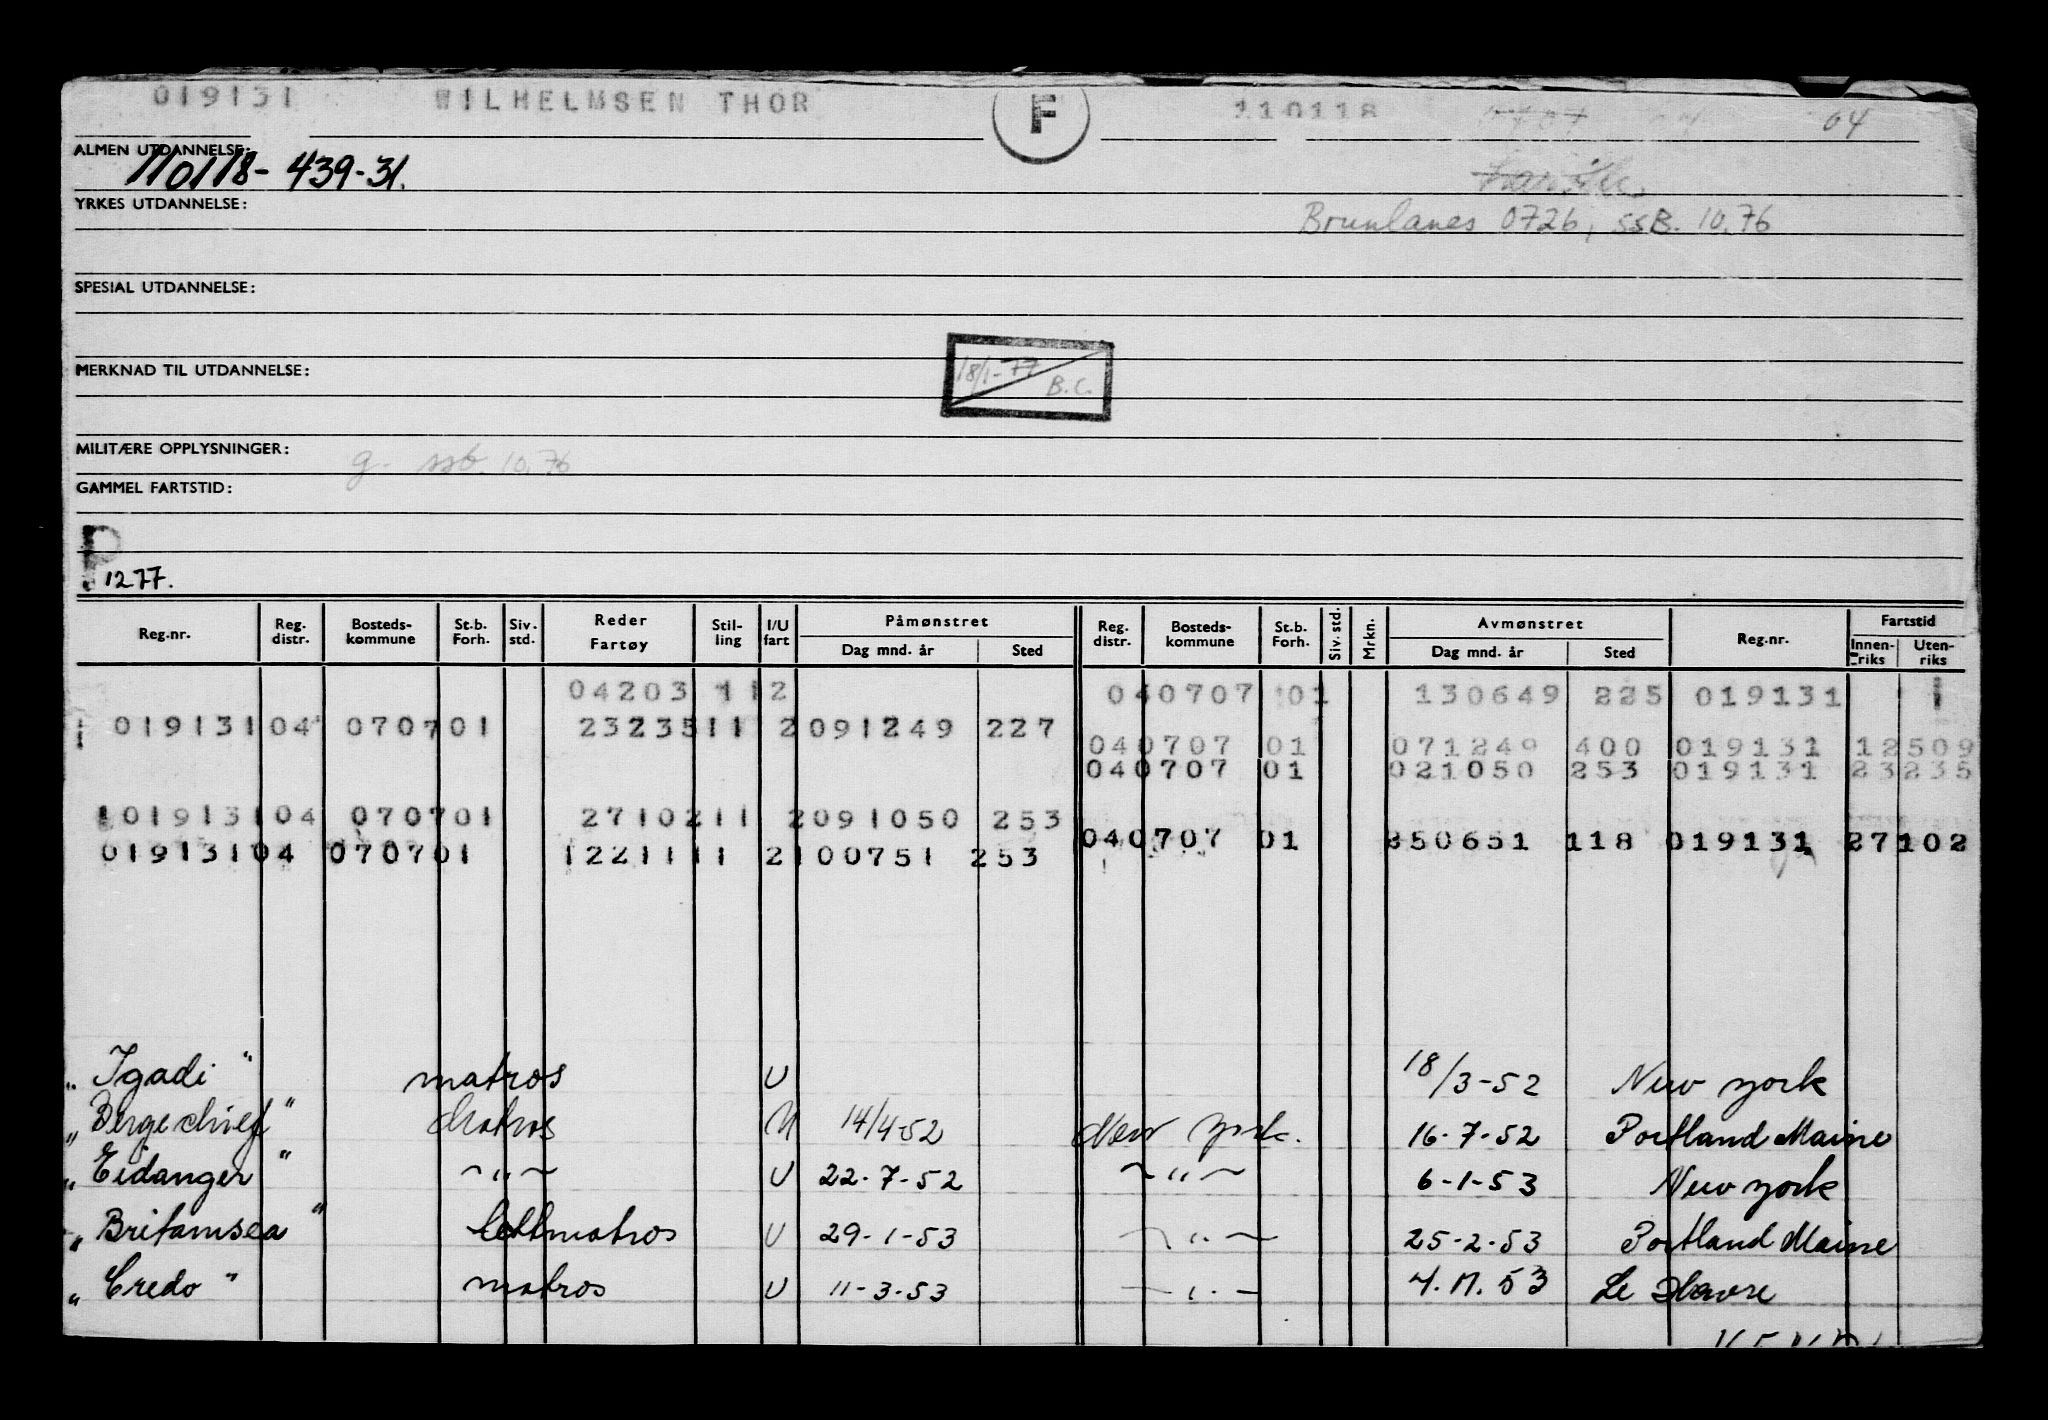 019131 WILHELMSEN THOR F 110118 04
ALMEN UTDANNELSE:
110118-439-31.
YRKES UTDANNELSE:
Brunlanes 0726, SSB. 10.76
SPESIAL UTDANNELSE:
MERKNAD TIL UTDANNELSE:
18/1-77 B.C.
MILITÆRE OPPLYSNINGER: g. ssb. 10.76
GAMMEL FARTSTID:
P
1277.
Reg.nr. Reg. distr. Bosteds-kommune St.b. Forh. Siv. std. Reder Fartøy Stil-ling I/U fart Påmønstret Dag mnd. år Sted Reg. distr. Bosteds-kommune St.b. Forh. Siv. std. Mrkn. Avmønstret Dag mnd. år Sted Reg.nr. Fartstid Innen-riks Uten-riks
04203 112 040707 01 130649 225 019131 1
1 019131 04 0707 01 23235 11 2 091249 227
040707 01 071249 400 019131 12509
040707 01 021050 253 019131 23235
1 019131 04 0707 01 27102 11 2 091050 253
040707 01 250651 118 019131 27102
019131 04 0707 01 12211 11 2 100751 253
„ Igadi " matros U 18/3-52 New York
„ Bergechief " Matros U 14/4-52 New York. 16-7-52 Portland Maine
„ Eidanger " ~ " ~ U 22-7-52 ~ " ~ 6-1-53 New York
„ Britamsea " lettmatros U 29-1-53 ~ " ~ 25-2-53 Portland Maine
„ Credo " matros U 11-3-53 - " - 4.11.53 Le Havre